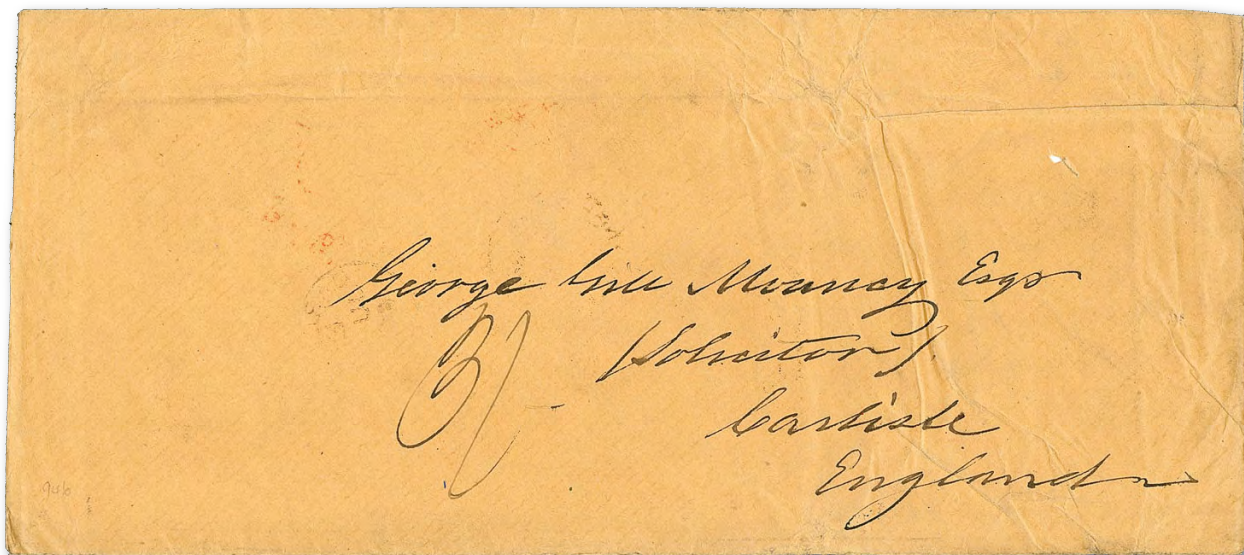 George Gill Mounsey Esqr
(Solicitor)
3/-
Carlisle
England